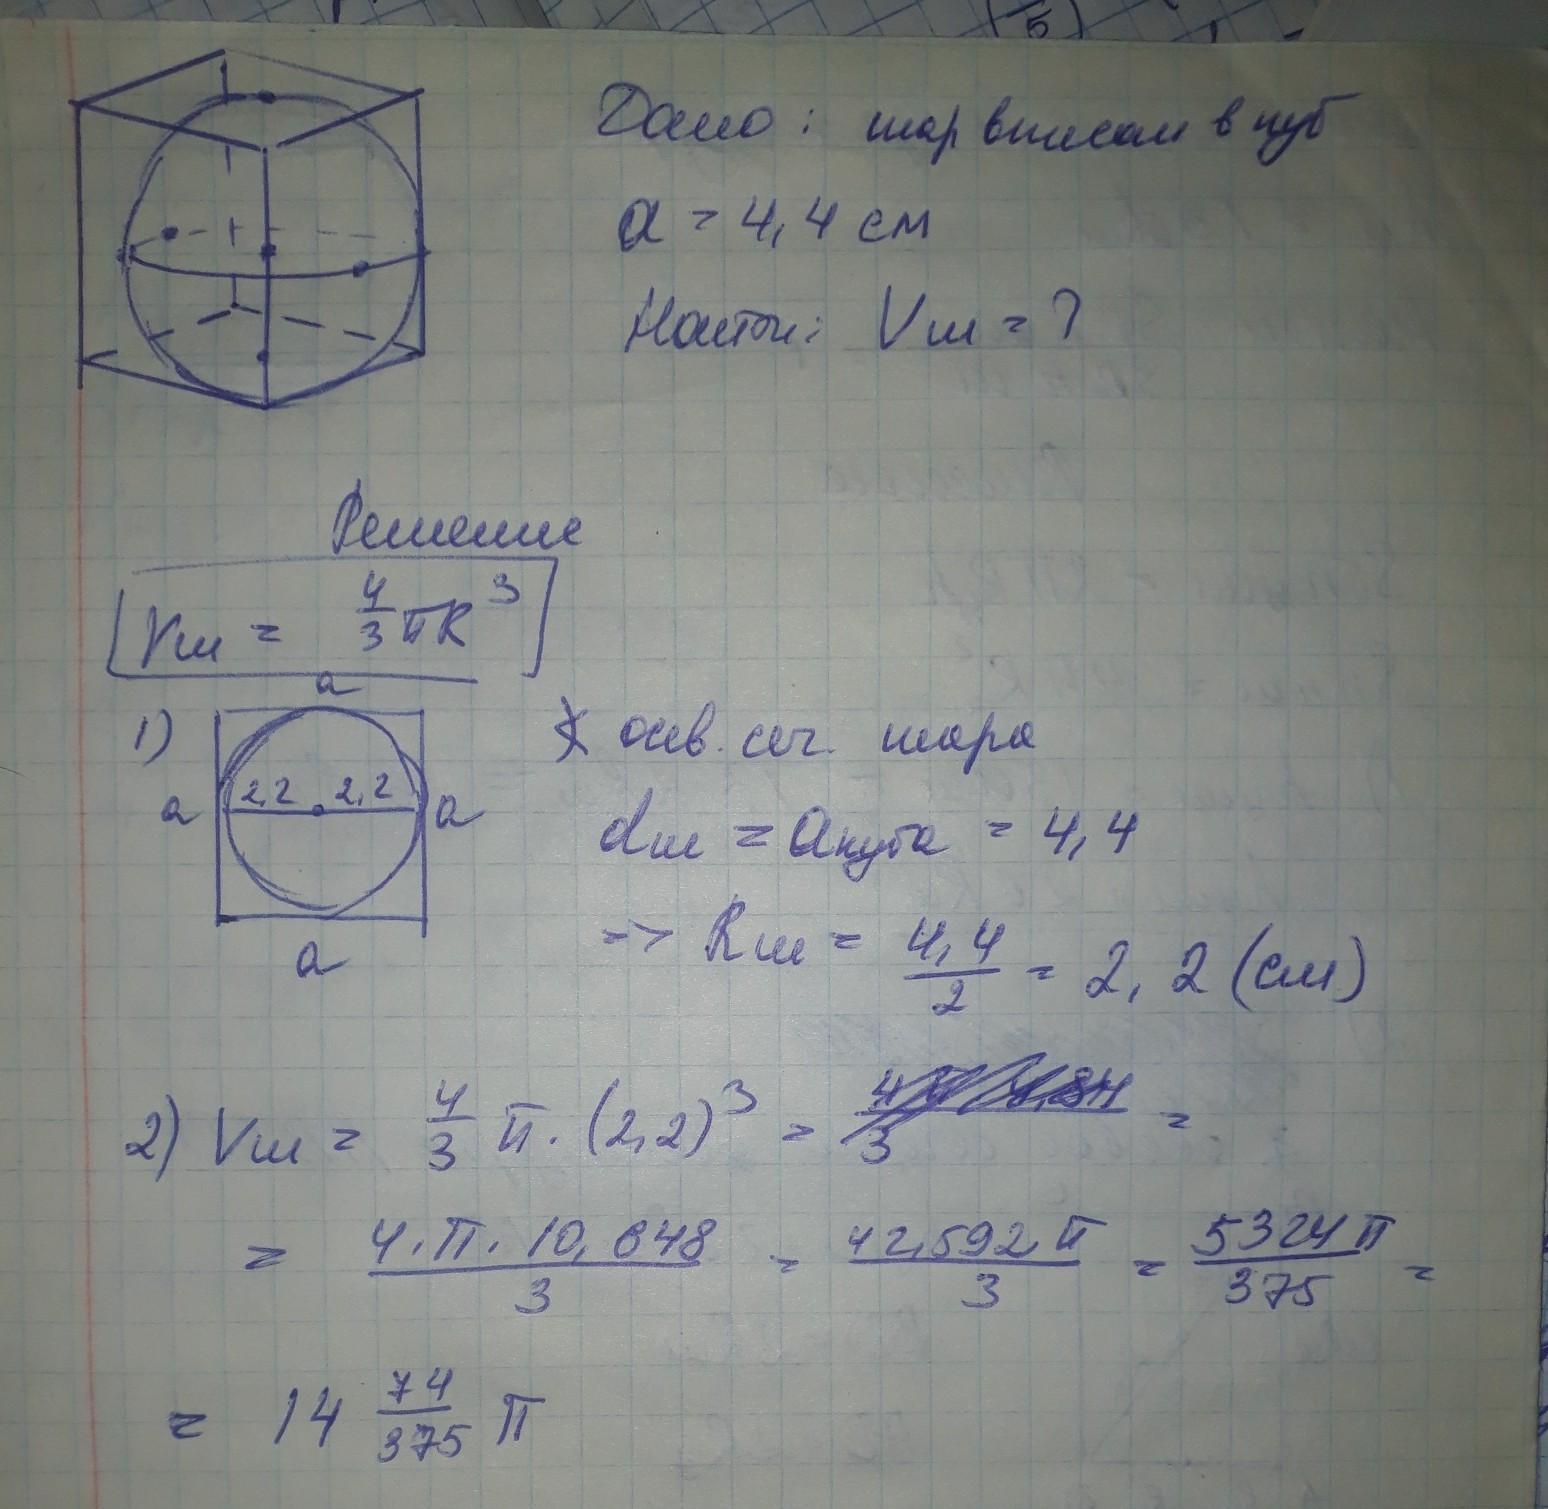 Дано: шар вписан в куб
a = 4,4 см
Найти: Vш = ?
Решение
Vш = 4/3 πR³
1) a
a 2,2 2,2 a
a
осев. сеч. шара
dш = aкуба = 4,4
=> Rш = 4,4/2 = 2,2 (см)
2) Vш = 4/3 π · (2,2)³ = =
= 4·π·10,648/3 = 42,592π/3 = 5324π/375 =
= 14 74/375 π